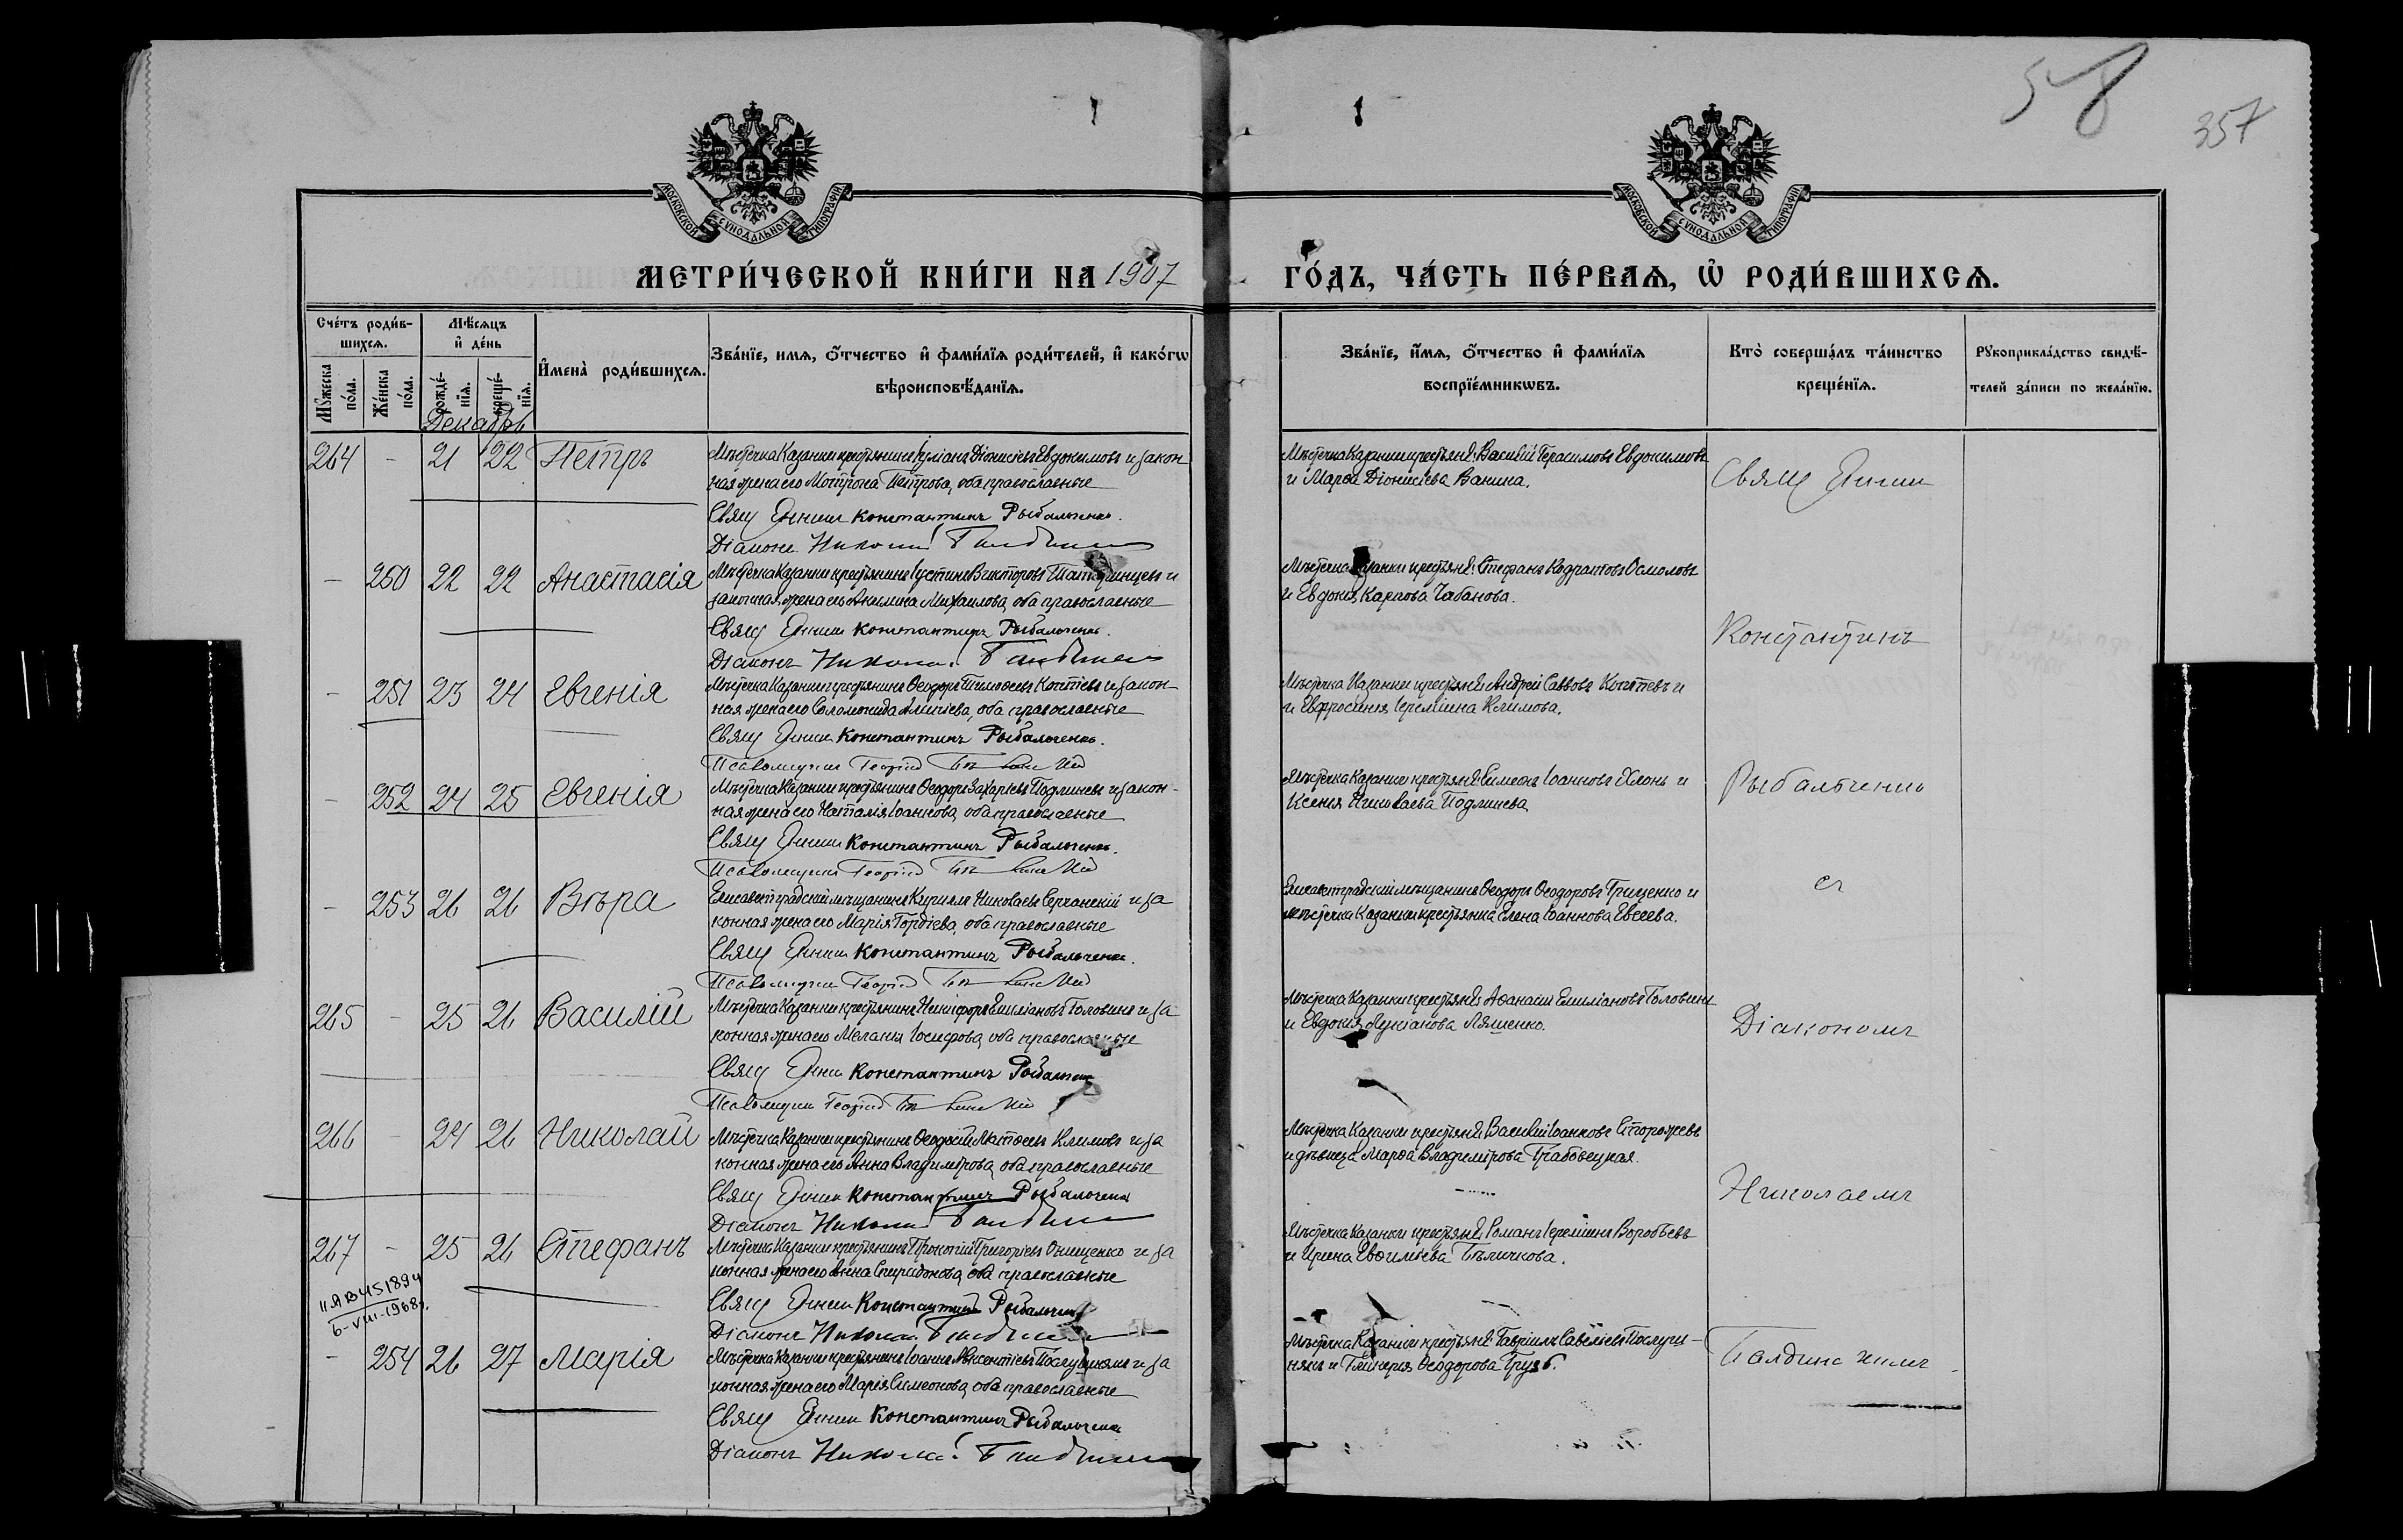 58
357
МОСКОВСКОЙ СѴНОДАЛЬНОЙ ТИПОГРАФІИ
МОСКОВСКОЙ СѴНОДАЛЬНОЙ ТИПОГРАФІИ
МЕТРИ́ЧЕСКОЙ КНИ́ГИ НА 1907
ГО́ДЪ, ЧА́СТЬ ПЕ́РВАѦ, Ѽ РОДИ́ВШИХСѦ.
Сче́тъ роди́в-
шихсѧ.
Мѣ́сѧцъ
и҆ де́нь
И҆мена̀ роди́вшихсѧ.
Зва́нїе, имѧ, ѻ҆́тчество и҆ фами́лїѧ роди́телей, и҆ како́гѡ
вѣроисповѣ́данїѧ.
Мꙋ́жеска по́ла.
Же́нска по́ла.
рожде́-нїѧ.
креще́-нїѧ.
Декабрь
Зва́нїе, и҆́мѧ, ѻ҆́тчество и҆ фами́лїѧ
воспрїе́мникѡвъ.
Кто̀ соверша́лъ та́инство
креще́нїѧ.
Рꙋкоприкла́дство свидѣ́-
телей за́писи по жела́нїю.
264 - 21 22 Петръ
Мѣстечка Казанки крестьянинъ Іуліанъ Діонисіевъ Евдокимовъ и закон
ная жена его Мотрона Петрова, оба православные
Свящ Константинъ Рыбальченко.
Діаконъ Николай
Мѣстечка Казанки крестьяне: Василій Герасимовъ Евдокимовъ
и Марѳа Діонисіева Ванина.
Свящ
- 250 22 22 Анастасія
Мѣстечка Казанки крестьянинъ Іустинъ Викторовъ и
законная жена его Акилина Михаилова, оба православные
Свящ Константинъ Рыбальченко.
Діаконъ Николай
Мѣстечка Казанки крестьяне: Стефанъ Осмоловъ
и Евдокія Карпова Чабанова.
Константинъ
- 251 23 24 Евгенія
Мѣстечка Казанки крестьянинъ Ѳеодоръ Тимоѳеевъ Коптевъ и закон-
ная жена его Соломонида, оба православные
Свящ Константинъ Рыбальченко.
Псаломщикъ Георгій
Мѣстечка Казанки крестьяне: Андрей Саввовъ Коптевъ и
и Евфросинія Іереміина Климова.
- 252 24 25 Евгенія
Мѣстечка Казанки крестьянинъ Ѳеодоръ Захаріевъ Подлиневъ и закон-
ная жена его Наталія Іоаннова, оба православные
Свящ Константинъ Рыбальченко.
Псаломщикъ Георгій
Мѣстечка Казанки крестьяне: Симеонъ Іоанновъ и
Ксенія Николаева Подлинева
Рыбальченко
- 253 26 26 Вѣра
Елисаветградскій мѣщанинъ Кириллъ Николаевъ и за
конная жена его Марія Гордіева, оба православные
Свящ Константинъ Рыбальченко.
Псаломщикъ Георгій
Елисаветградскій мѣщанинъ Ѳеодоръ Ѳеодоровъ Гриценко и
мѣстечка Казанки крестьянка Елена Іоаннова Евсеева.
съ
265 - 25 26 Василій
Мѣстечка Казанки крестьянинъ Никифоръ Емиліановъ Головинъ и за
конная жена его Меланія Іосифова, оба православные
Свящ Константинъ
Псаломщикъ Георгій
Мѣстечка Казанки крестьяне: Аѳанасій Емиліановъ Головинъ
и Евдокія Лукіанова Ляшенко.
Діакономъ
266 - 24 26 Николай
Мѣстечка Казанки крестьянинъ Ѳеодосій Матѳеевъ Климовъ и за
конная жена его Анна Владимірова, оба православные
Свящ Константинъ Рыбальченко
Діаконъ Николай
Мѣстечка Казанки крестьяне: Василій Іоанновъ Сторожевъ
и дѣвица Марѳа Владимірова Грабовецкая.
Николаемъ
267 - 25 26 Стефанъ
Мѣстечка Казанки крестьянинъ Прокопій Григоріевъ Онищенко и за
конная жена его Анна Спиридонова, оба православные
Свящ Константинъ
Діаконъ Николай
Мѣстечка Казанки крестьяне: Романъ Іереміинъ Воробьевъ
и Ирина Евѳиміева Бѣличкова.
II ЯВ 451894
6-VIII-1968г.
- 254 26 27 Марія
Мѣстечка Казанки крестьянинъ Іоаннъ Авксентіевъ и за
конная жена его Марія Симеонова, оба православные
Свящ Константинъ Рыбальченко
Діаконъ Николай
Мѣстечка Казанки крестьяне: Гавріилъ Савеліевъ
и Гликерія Ѳеодорова